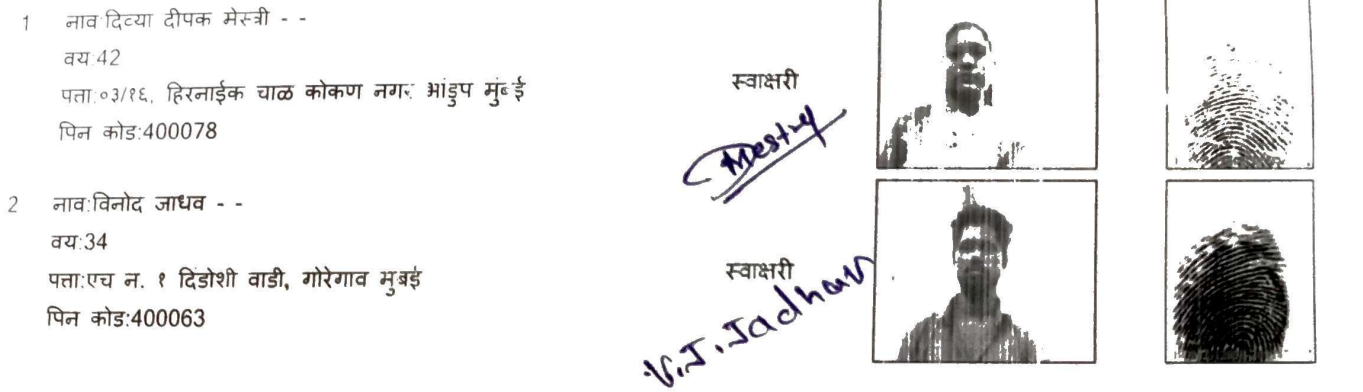 1 नाव:दिव्या दीपक मेस्त्री - -
वय:42
पत्ता:०३/१६, हिरनाईक चाळ कोकण नगर भांडुप मुंबई
पिन कोड:400078
स्वाक्षरी
Mestry
2 नाव:विनोद जाधव - -
वय:34
पत्ता:एच न. १ दिंडोशी वाडी, गोरेगाव मुंबई
पिन कोड:400063
स्वाक्षरी
V.J.Jadhav